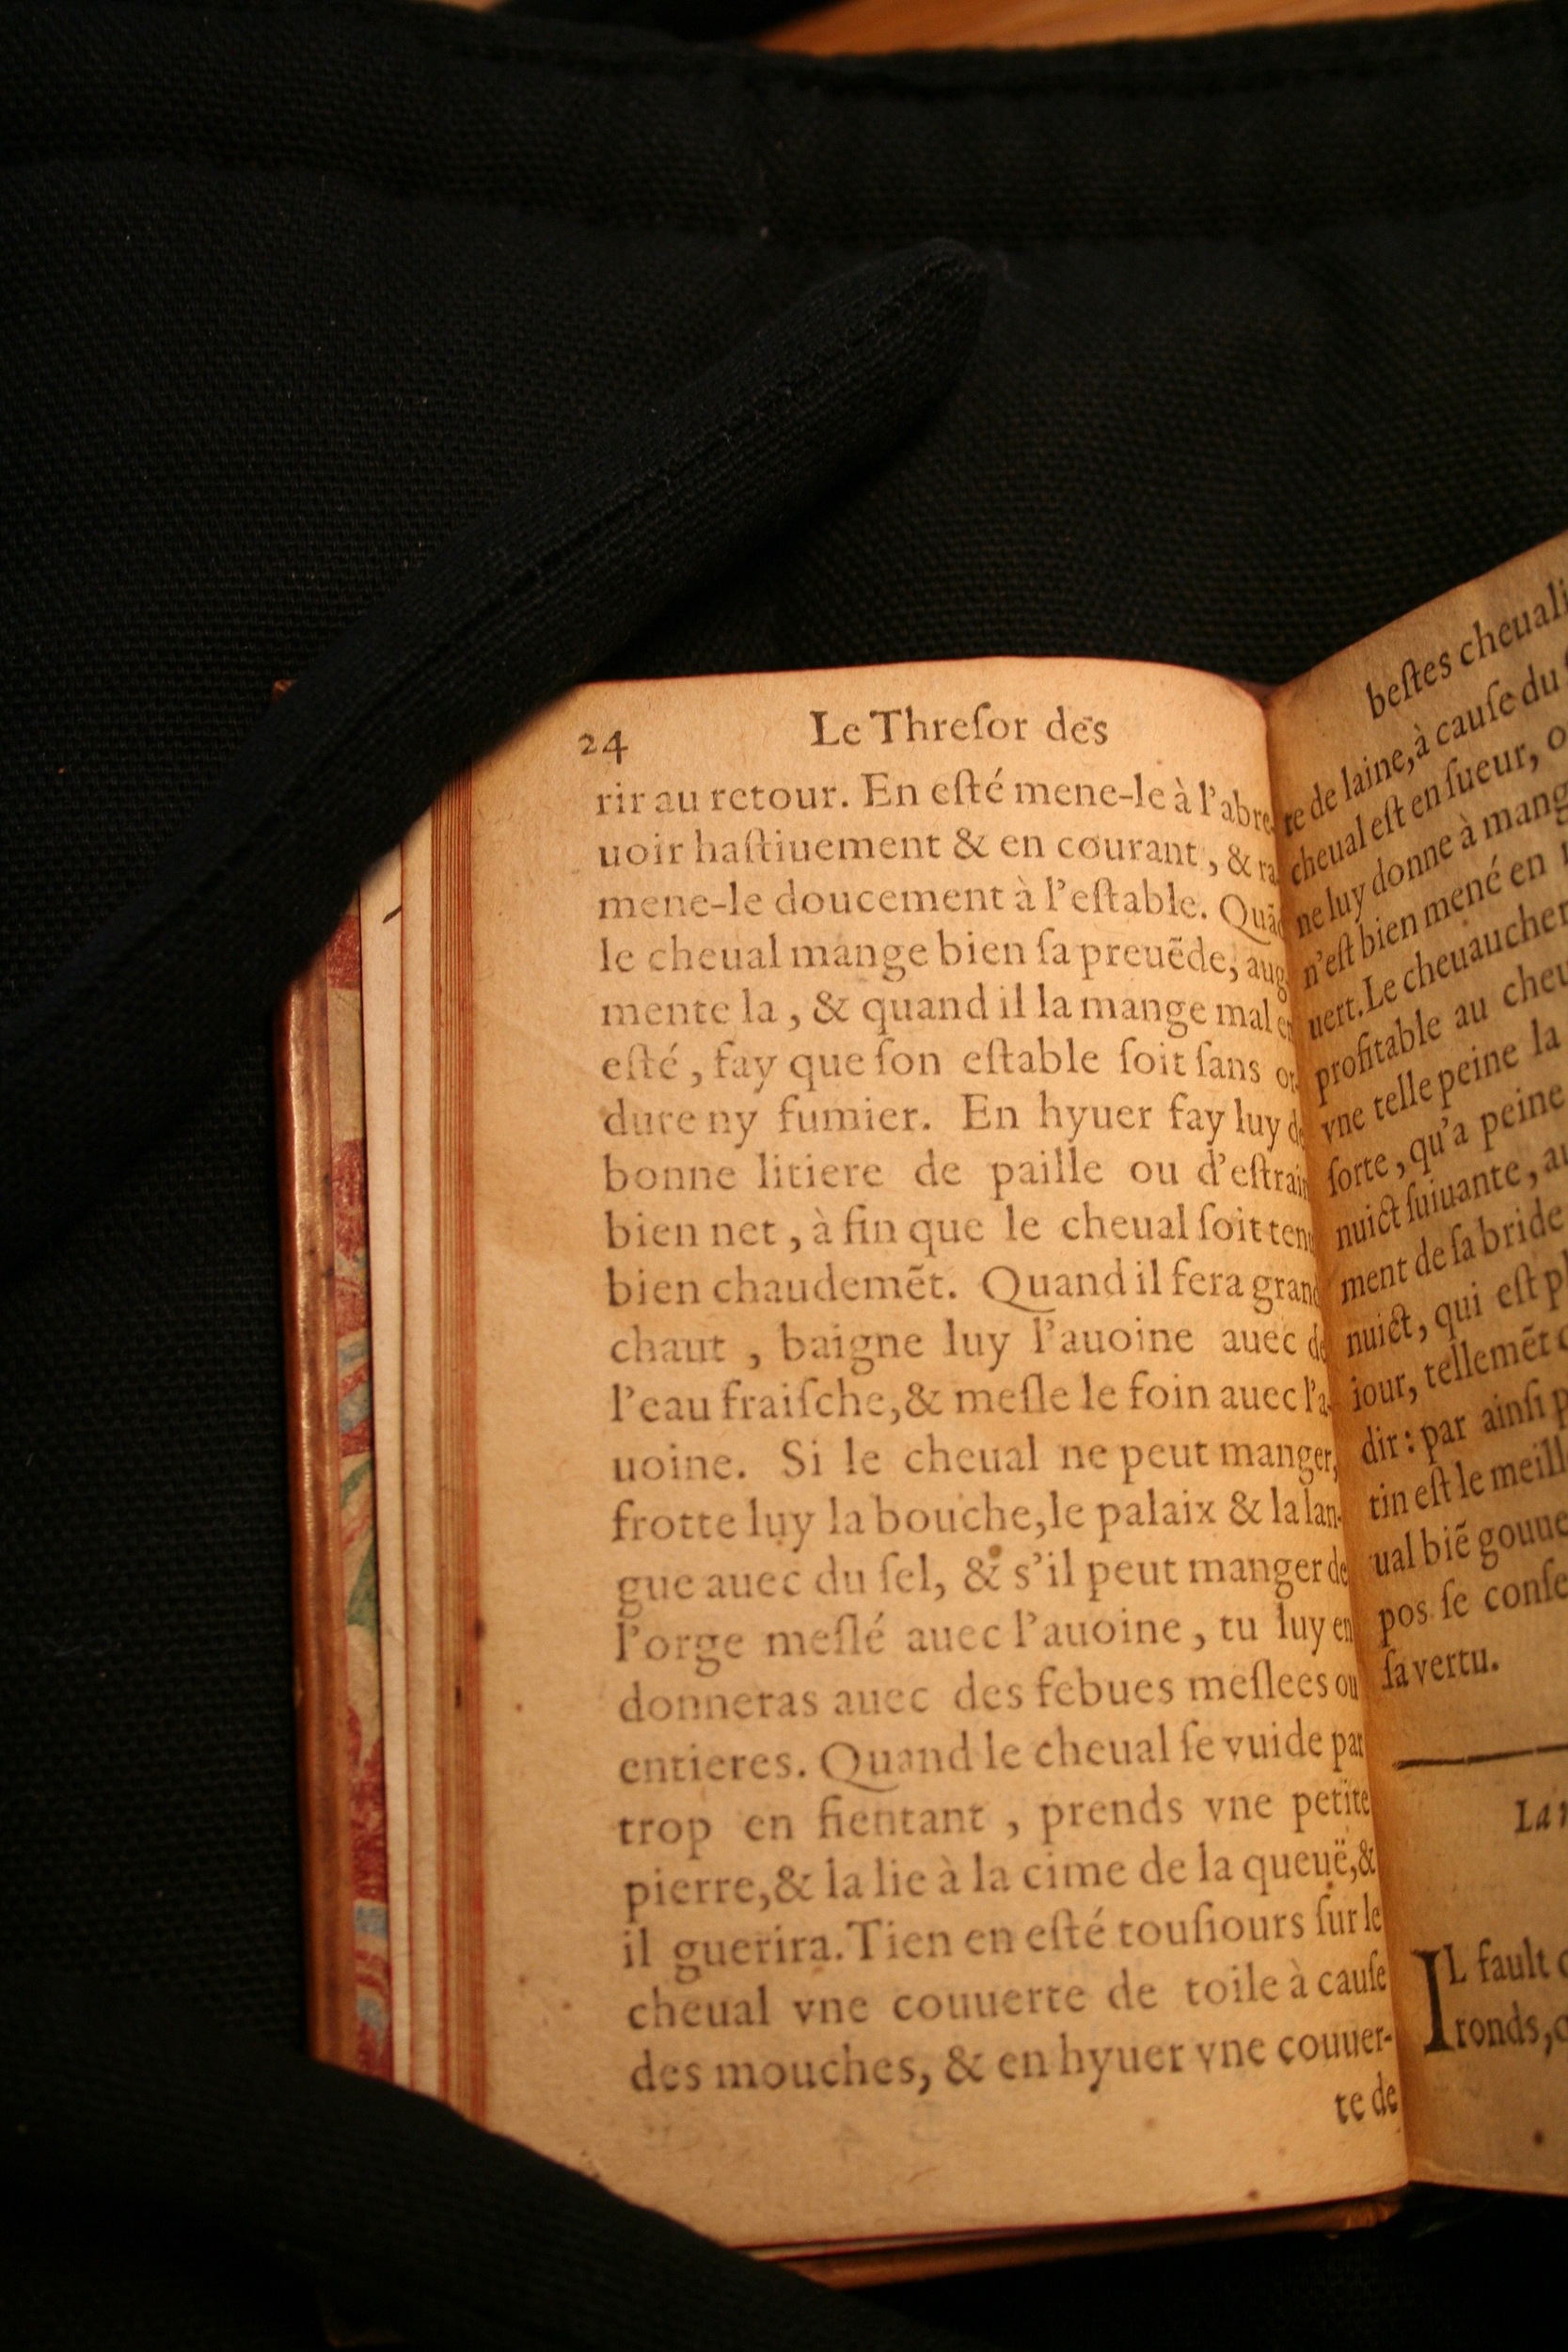 24 Le Threſor des
rir au retour. En eſté mene-le à l'abre-
uoir haſtiuement & en courant, & ra
mene-le doucement à l'eſtable. Quãd
le cheual mange bien ſa preuẽde, aug
mente la, & quand il la mange mal en
eſté, fay que ſon eſtable ſoit ſans or-
dure ny fumier. En hyuer fay luy de
bonne litiere de paille ou d'eſtrain
bien net, à fin que le cheual ſoit tenu
bien chaudemẽt. Quand il fera grand
chaut, baigne luy l'auoine auec de
l'eau fraiſche, & meſle le foin auec l'a-
uoine. Si le cheual ne peut manger,
frotte luy la bouche, le palaix & la lan-
gue auec du ſel, & s'il peut manger de
l'orge meſlé auec l'auoine, tu luy en
donneras auec des febues meſlees ou
entieres. Quand le cheual ſe vuide par
trop en fientant, prends vne petite
pierre, & la lie à la cime de la queuë, &
il guerira. Tien en eſté touſiours ſur le
cheual vne couuerte de toile à cauſe
des mouches, & en hyuer vne couuer-
te de
beſtes cheuali
re de laine, à cauſe du
cheual eſt en ſueur,
ne luy donne à mang
n'eſt bien mené en
uert. Le cheuaucher
profitable au cheu
vne telle peine la
ſorte, qu'a peine
nuict ſuiuante, au
ment de ſa bride
nuict, qui eſt pl
iour, tellemẽt
dir: par ainſi p
tin eſt le meill
ual biẽ gouue
pos ſe conſe
ſa vertu.
La
IL fault
ronds,